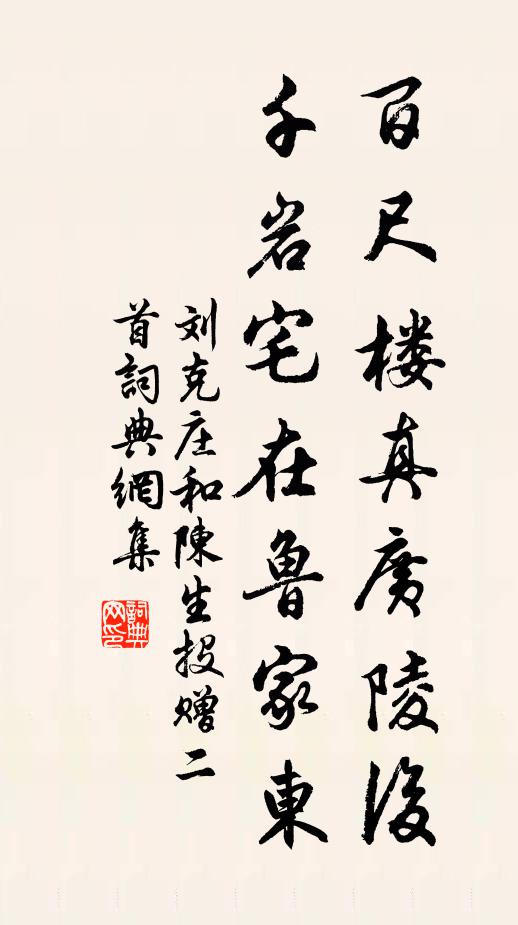 百尺楼真廣陵後
千岩宅在魯家東
刘克庄和陳生投赠二
首詞典網集
詞典
网印